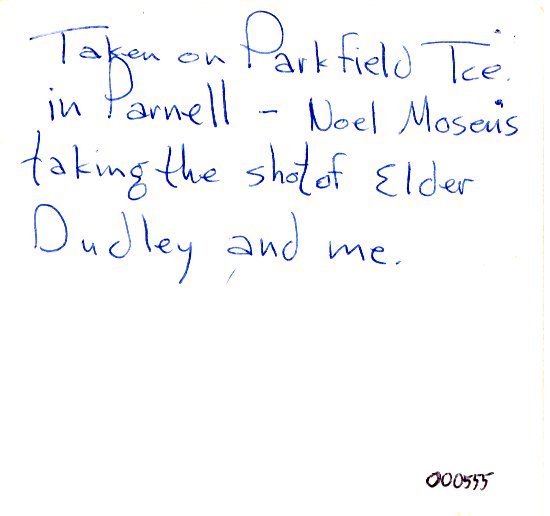 Taken on Parkfield Tce.
in Parnell - Noel Moseus
taking the shot of Elder
Dudley and me.
000555